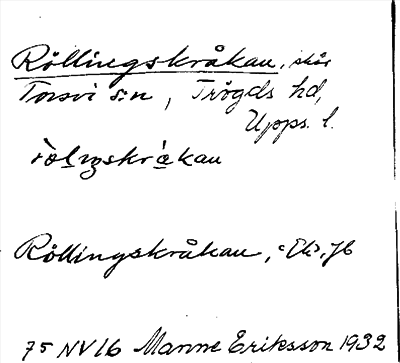 Röllingskråkan, skär
Torsvi s:n, Trögds hd,
Upps. l.
Röllingskråkan, Ek., Jb
75 NV 16 Manne Eriksson 1932